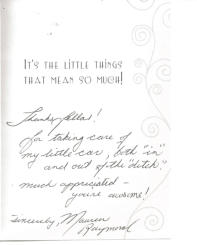 IT'S THE LITTLE THINGS
THAT MEAN SO MUCH!
Thanks fellas!
for taking care of
my little car, both "in"
and out of the "ditch."
much appreciated –
you're awesome!
Sincerely, Maureen
Raymond